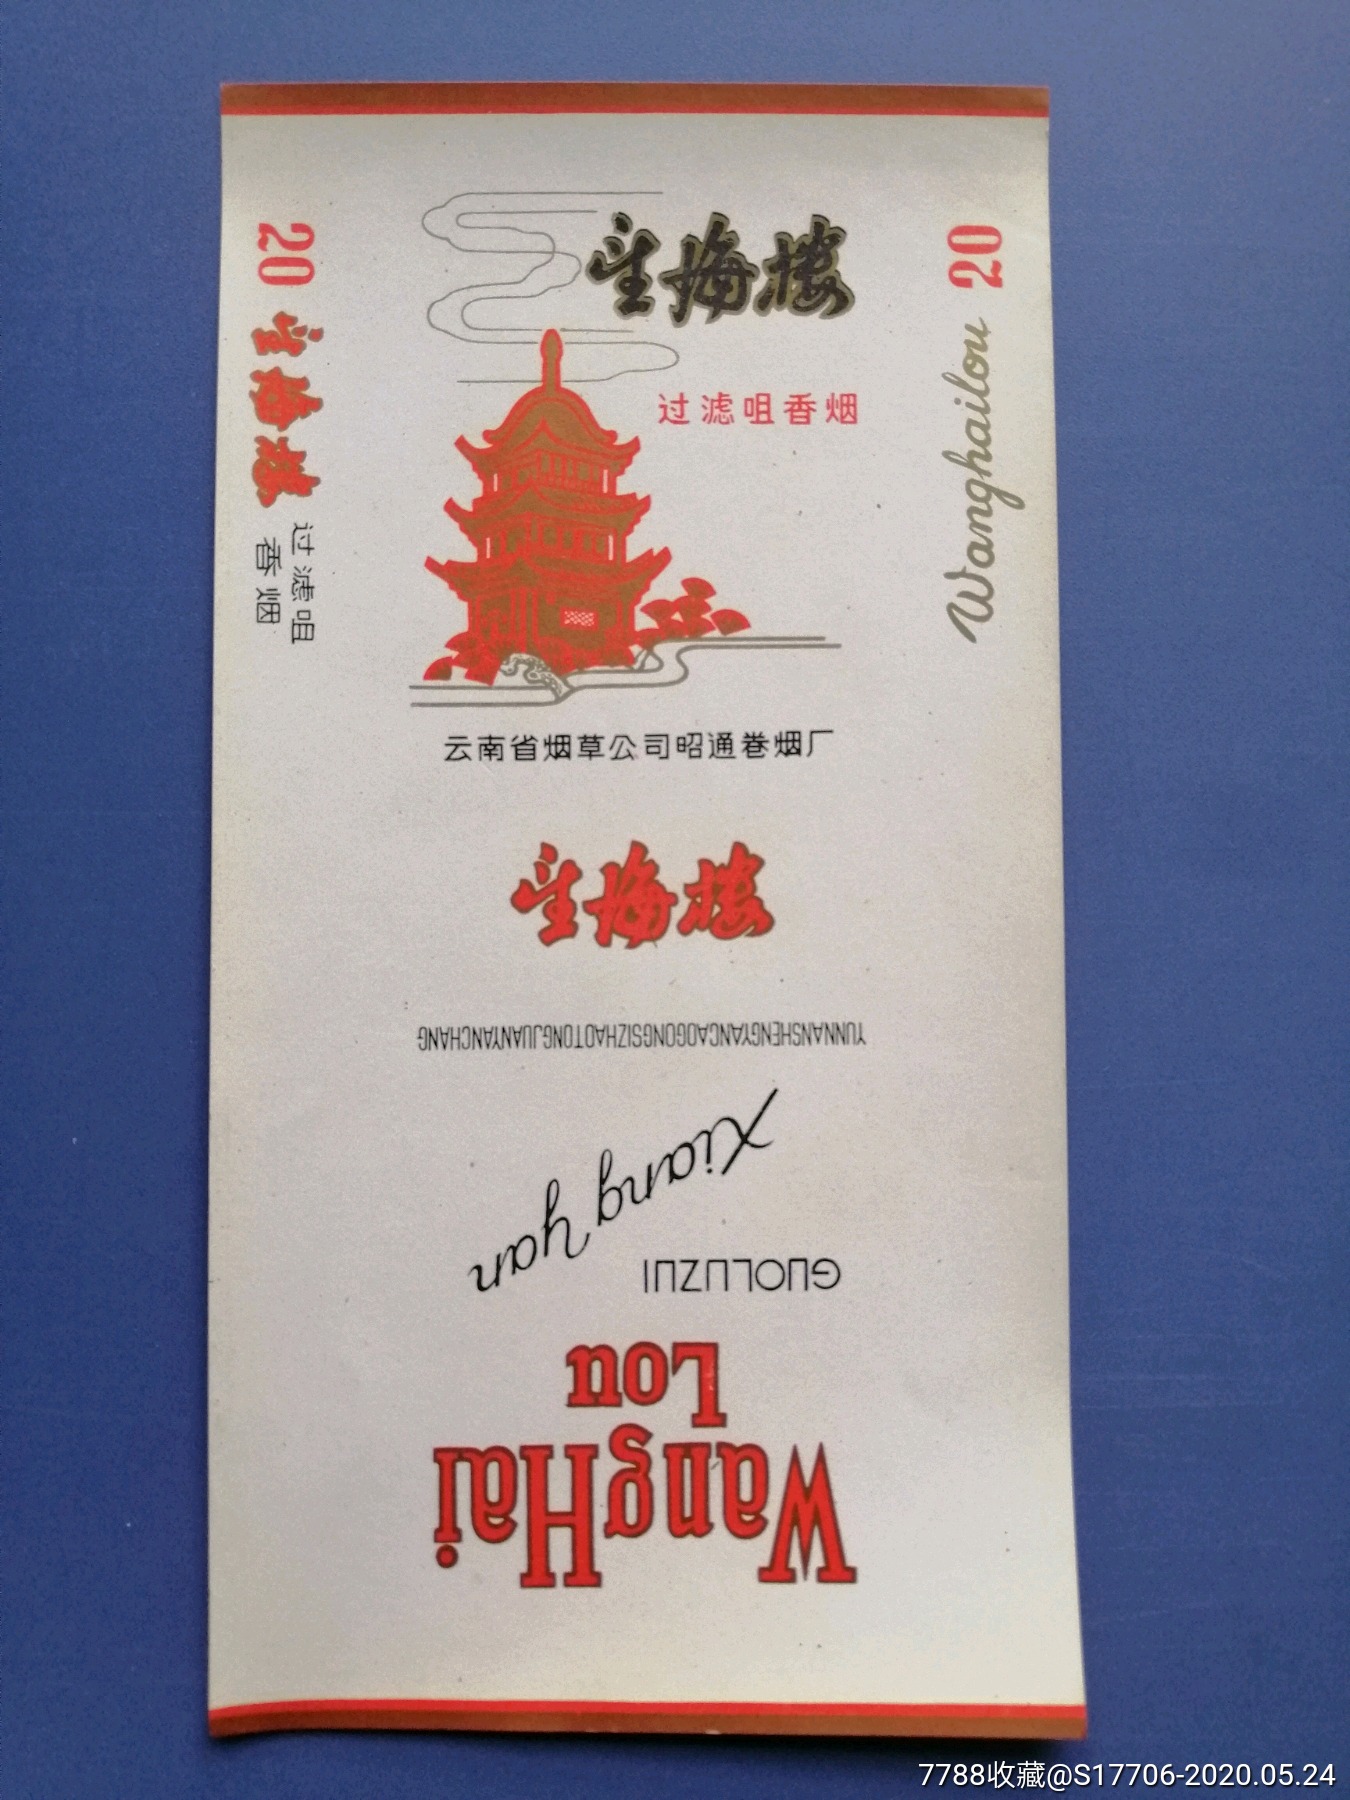 望海楼
过滤咀香烟
云南省烟草公司昭通卷烟厂
望海楼
20
望海楼
过滤咀
香烟
20
Wanghailou
WangHai
Lou
GUOLUZUI
Xiang Yan
YUNNANSHENGYANCAOGONGSIZHAOTONGJUANYANCHANG
7788收藏@S17706-2020.05.24